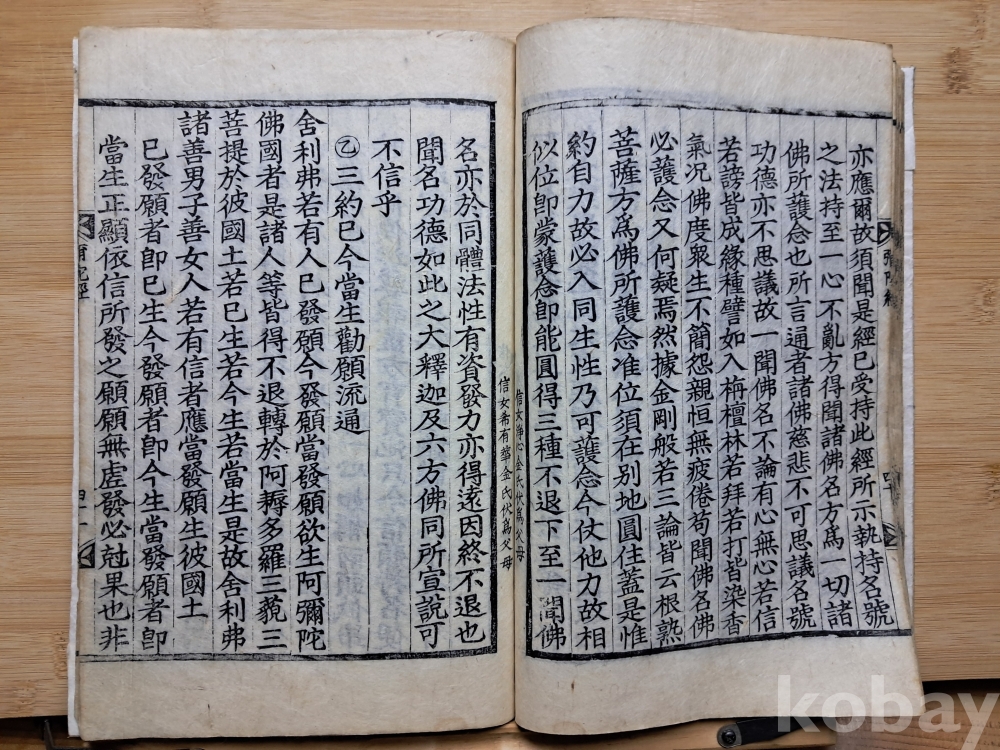 亦應爾故須聞是經已受持此經所示執持名號
之法持至一心不亂方得聞諸佛名方爲一切諸
佛所護念也所言通者諸佛慈悲不可思議名號
功德亦不思議故一聞佛名不論有心無心若信
若謗皆成緣種譬如入栴檀林若拜若打皆染香
氣況佛度衆生不簡怨親恒無疲倦苟聞佛名佛
必護念又何疑焉然據金剛般若三論皆云根熟
菩薩方爲佛所護念准位須在別地圓住蓋是惟
約自力故必入同生性乃可護念今仗他力故相
似位卽蒙護念卽能圓得三種不退下至一聞佛
信女淨心金氏伏爲父母
信女希有華金氏伏爲父母
名亦於同體法性有資發力亦得遠因終不退也
聞名功德如此之大釋迦及六方佛同所宣說可
不信乎
乙三約已今當生勸願流通
舍利弗若有人已發願今發願當發願欲生阿彌陀
佛國者是諸人等皆得不退轉於阿耨多羅三藐三
菩提於彼國土若已生若今生若當生是故舍利弗
諸善男子善女人若有信者應當發願生彼國土
已發願者卽已生今發願者卽今生當發願者卽
當生正顯依信所發之願願無虛發必尅果也非
四十一
kobay